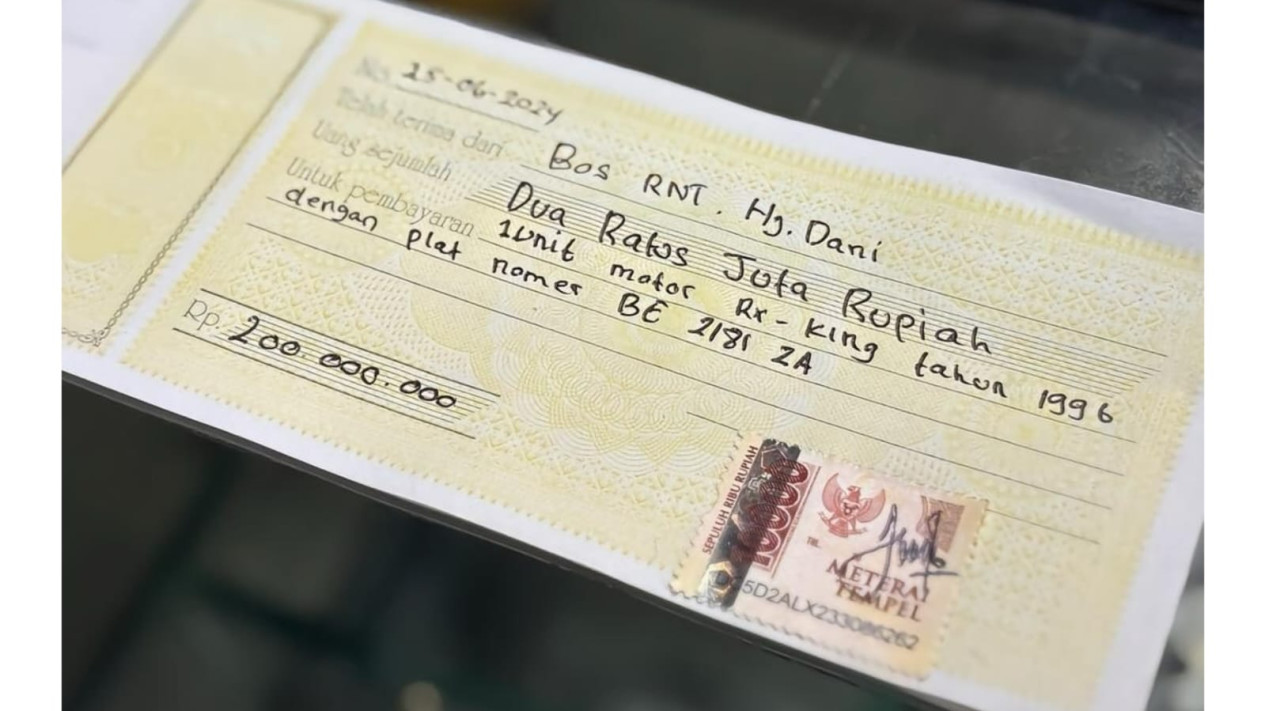 No. 25-06-2024
Telah terima dari Bos RNT. Hj. Dani
Uang sejumlah Dua Ratus Juta Rupiah
Untuk pembayaran 1 Unit motor Rx-King tahun 1996
dengan plat nomer BE 2181 ZA
Rp. 200.000.000
SEPULUH RIBU RUPIAH
10000
TGL.
METERAI
TEMPEL
5D2ALX233086262